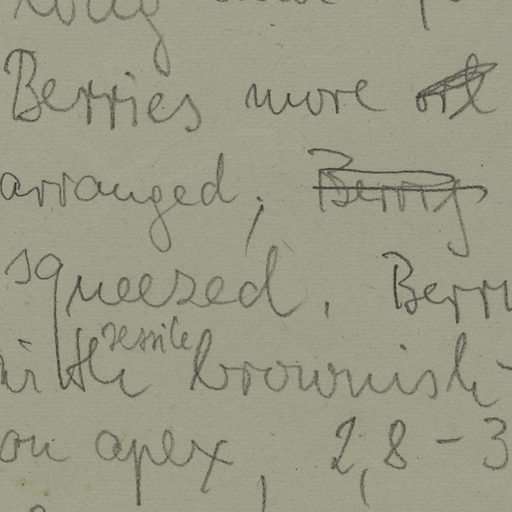 Berries more
arranged; Berry
squeezed. Berr
sessile
with brownish-
on apex, 2,8-3